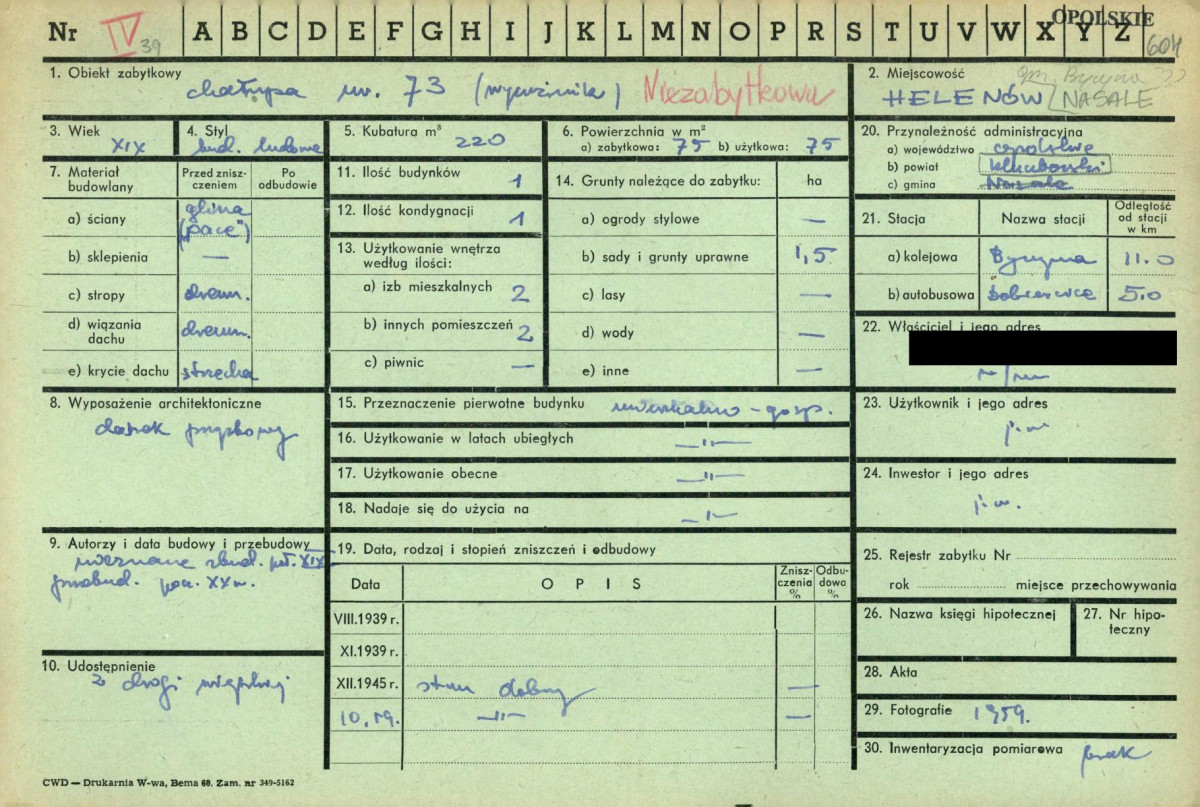 OPOLSKIE
Nr IV 39 A B C D E F G H I J K L M N O P R S T U V W X Y Z 604
1. Obiekt zabytkowy
chałupa nr. 73 (wycużnika) Niezabytkowa
2. Miejscowość gm. Byczyna
HELENÓW / NASALE
3. Wiek
XIX
4. Styl
bud. ludowe
5. Kubatura m³
220
6. Powierzchnia w m²
a) zabytkowa: 75 b) użytkowa: 75
20. Przynależność administracyjna
a) województwo opolskie
b) powiat kluczborski
c) gmina Nasale
7. Materiał budowlany
Przed zniszczeniem
Po odbudowie
a) ściany glina
("pace")
b) sklepienia —
c) stropy drewn.
d) wiązania dachu drewn.
e) krycie dachu strzecha
11. Ilość budynków 1
12. Ilość kondygnacji 1
13. Użytkowanie wnętrza
według ilości:
a) izb mieszkalnych 2
b) innych pomieszczeń 2
c) piwnic —
14. Grunty należące do zabytku: ha
a) ogrody stylowe —
b) sady i grunty uprawne 1,5
c) lasy —
d) wody —
e) inne —
21. Stacja Nazwa stacji Odległość od stacji w km
a) kolejowa Byczyna 11.0
b) autobusowa 5.0
22. Właściciel i jego adres
8. Wyposażenie architektoniczne
daszek przyzbowy
15. Przeznaczenie pierwotne budynku mieszkalno - gosp.
16. Użytkowanie w latach ubiegłych —"—
17. Użytkowanie obecne —"—
18. Nadaje się do użycia na —"—
23. Użytkownik i jego adres
j.w.
24. Inwestor i jego adres
j.w.
9. Autorzy i data budowy i przebudowy
nieznane zbud. poł. XIX
przebud. pocz. XX w.
10. Udostępnienie
z drogi wiejskiej
19. Data, rodzaj i stopień zniszczeń i odbudowy
Data OPIS Zniszczenia % Odbudowa %
VIII.1939 r.
XI.1939 r.
XII.1945 r. stan dobry —
10.59. —"— —
25. Rejestr zabytku Nr
rok miejsce przechowywania
26. Nazwa księgi hipotecznej
27. Nr hipoteczny
28. Akta
29. Fotografie 1959.
30. Inwentaryzacja pomiarowa brak
CWD — Drukarnia W-wa, Bema 60. Zam. nr 349-5162